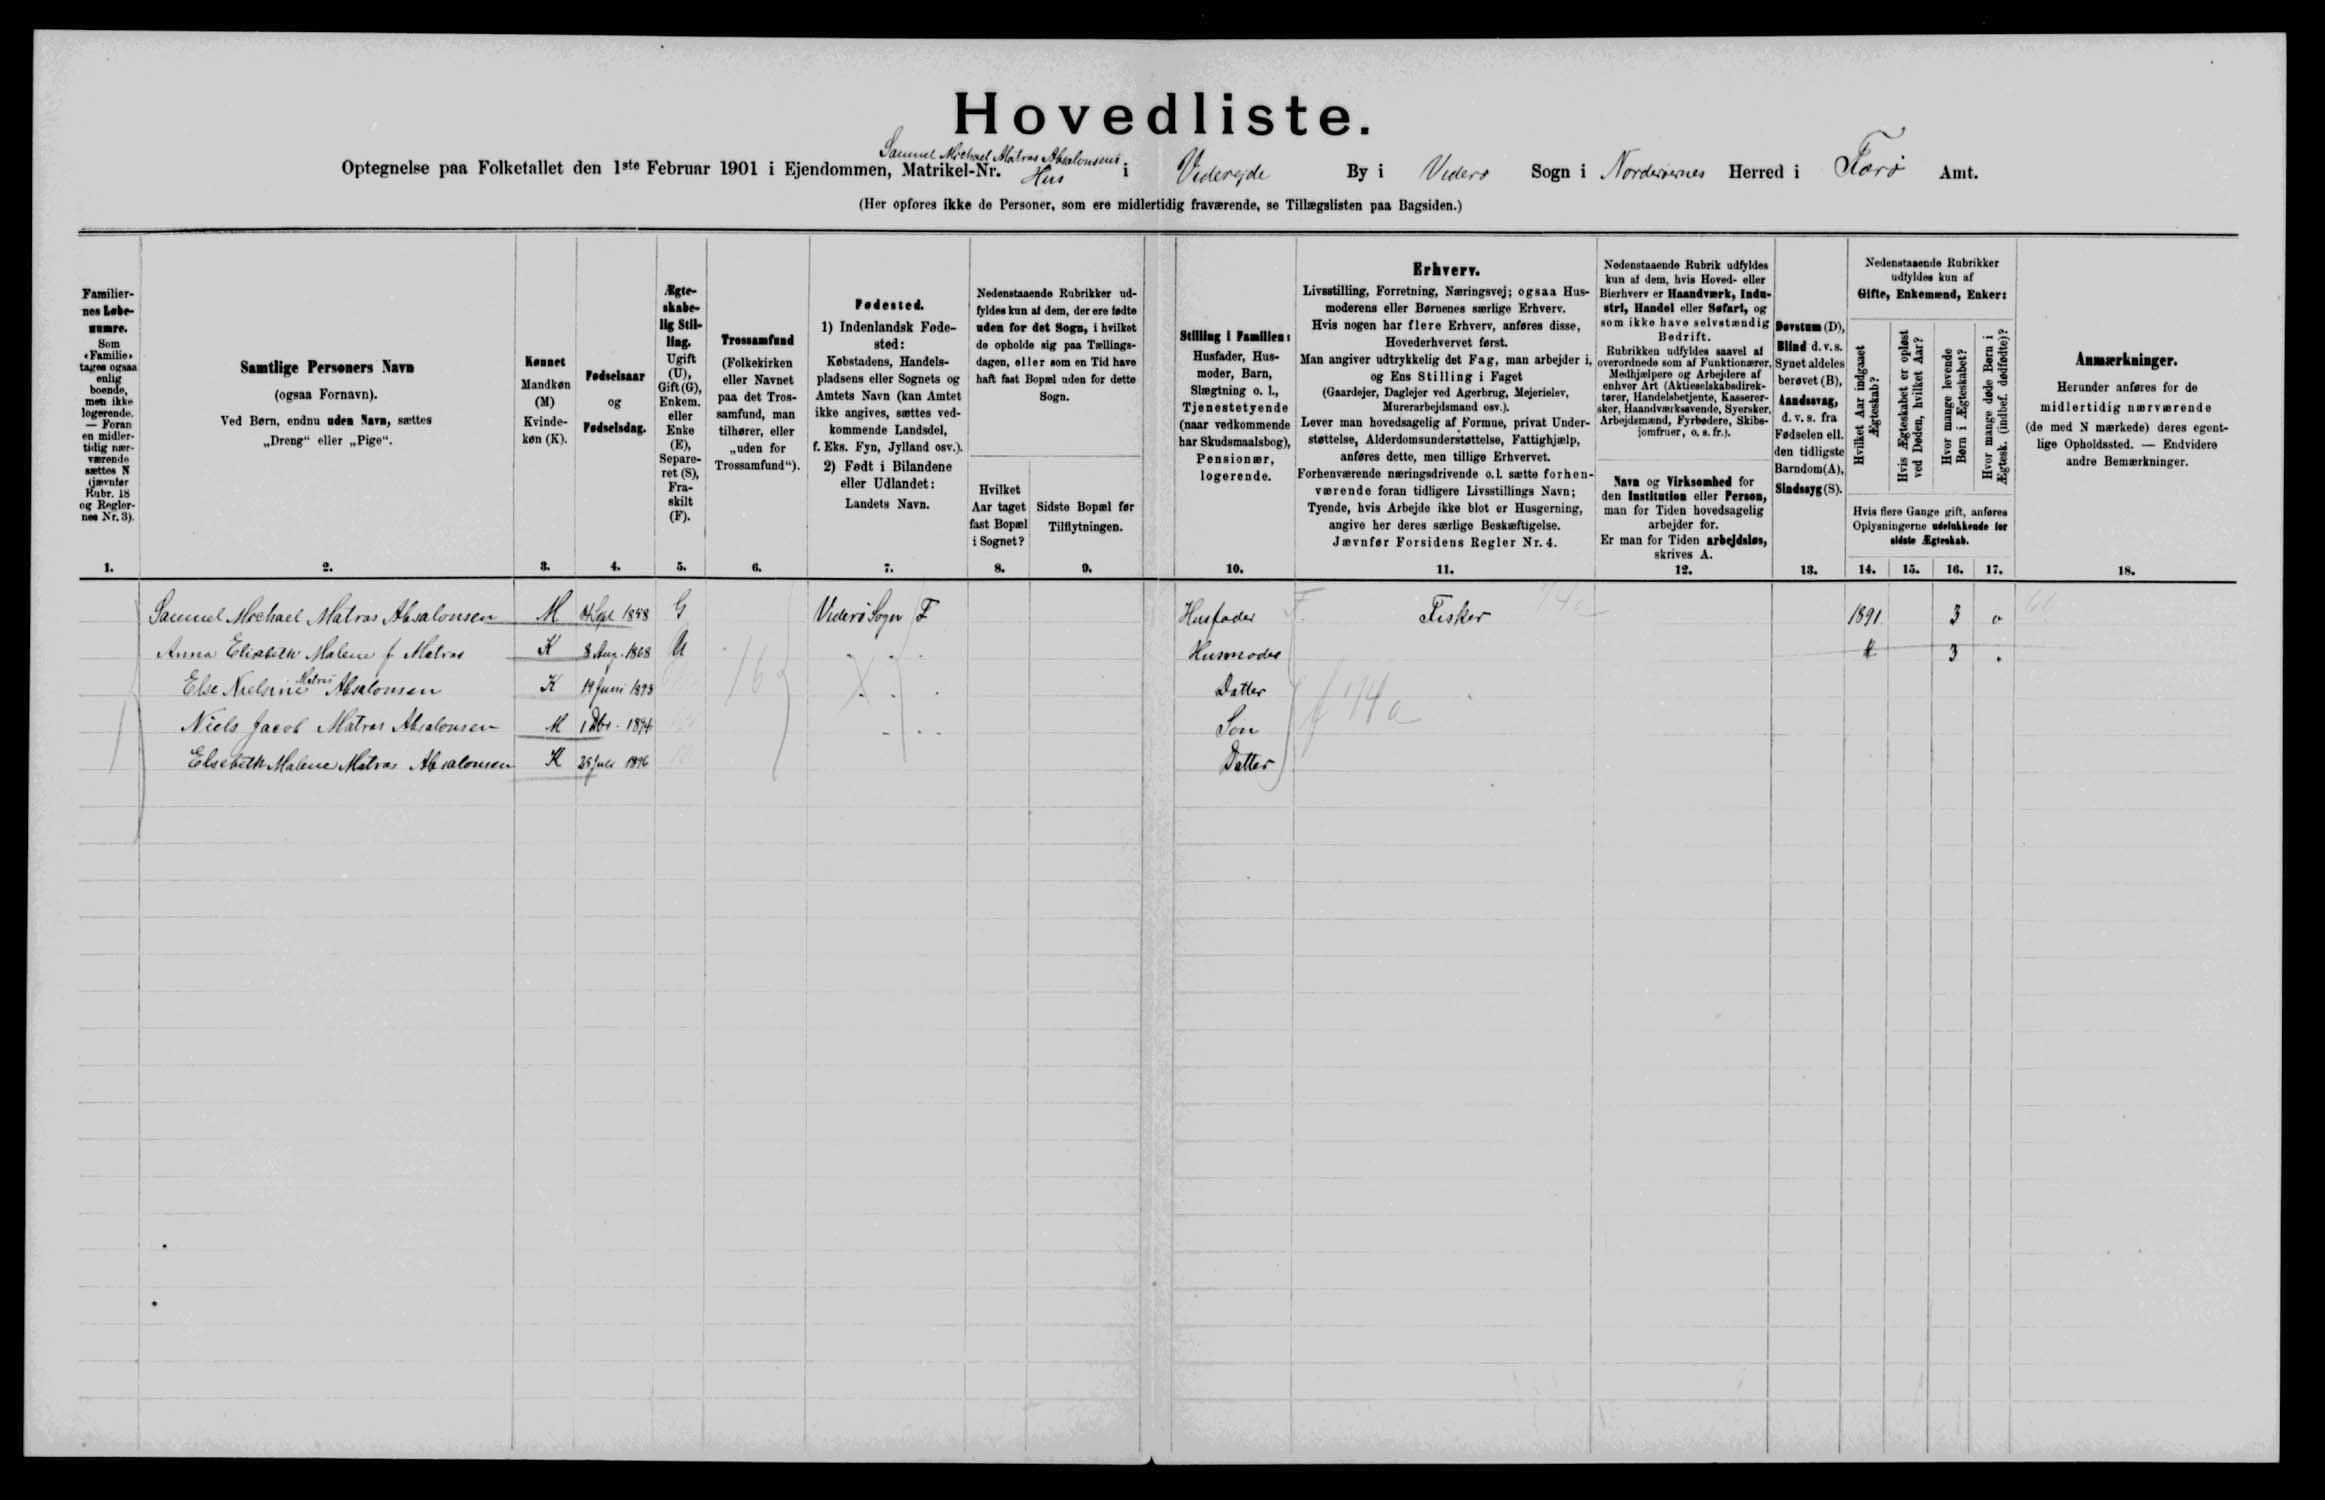 Hovedliste.
Samuel Michael Matras Absalonsens
Optegnelse paa Folketallet den 1ste Februar 1901 i Ejendommen, Matrikel-Nr. Hus i Viderejde By i Viderø Sogn i Norderøernes Herred i Færø Amt.
(Her opføres ikke de Personer, som ere midlertidig fraværende, se Tillægslisten paa Bagsiden.)
Familiernes Løbenumre.
Som «Familie» tages ogsaa enlig boende, men ikke logerende. — Foran en midlertidig nærværende sættes N (jævnfør Rubr. 18 og Reglernes Nr. 3).
1.
Samtlige Personers Navn
(ogsaa Fornavn).
Ved Børn, endnu uden Navn, sættes
„Dreng“ eller „Pige“.
2.
Kønnet
Mandkøn
(M)
Kvinde-
køn (K).
3.
Fødselsaar
og
Fødselsdag.
4.
Ægte-
skabe-
lig Stil-
ling.
Ugift
(U),
Gift (G),
Enkem.
eller
Enke
(E),
Separe-
ret (S),
Fra-
skilt
(F).
5.
Trossamfund
(Folkekirken
eller Navnet
paa det Tros-
samfund, man
tilhører, eller
„uden for
Trossamfund“).
6.
Fødested.
1) Indenlandsk Føde-
sted:
Købstadens, Handels-
pladsens eller Sognets og
Amtets Navn (kan Amtet
ikke angives, sættes ved-
kommende Landsdel,
f. Eks. Fyn, Jylland osv.).
2) Født i Bilandene
eller Udlandet:
Landets Navn.
7.
Nedenstaaende Rubrikker ud-
fyldes kun af dem, der ere fødte
uden for det Sogn, i hvilket
de opholde sig paa Tællings-
dagen, eller som en Tid have
haft fast Bopæl uden for dette
Sogn.
Hvilket
Aar taget
fast Bopæl
i Sognet?
8.
Sidste Bopæl før
Tilflytningen.
9.
Stilling i Familien:
Husfader, Hus-
moder, Barn,
Slægtning o. l.,
Tjenestetyende
(naar vedkommende
har Skudsmaalsbog),
Pensionær,
logerende.
10.
Erhverv.
Livsstilling, Forretning, Næringsvej; ogsaa Hus-
moderens eller Børnenes særlige Erhverv.
Hvis nogen har flere Erhverv, anføres disse,
Hovederhvervet først.
Man angiver udtrykkelig det Fag, man arbejder i,
og Ens Stilling i Faget
(Gaardejer, Daglejer ved Agerbrug, Mejerielev,
Murerarbejdsmand osv.).
Lever man hovedsagelig af Formue, privat Under-
støttelse, Alderdomsunderstøttelse, Fattighjælp,
anføres dette, men tillige Erhvervet.
Forhenværende næringsdrivende o.l. sætte forhen-
værende foran tidligere Livsstillings Navn;
Tyende, hvis Arbejde ikke blot er Husgerning,
angive her deres særlige Beskæftigelse.
Jævnfør Forsidens Regler Nr. 4.
11.
Nedenstaaende Rubrik udfyldes
kun af dem, hvis Hoved- eller
Bierhverv er Haandværk, Indu-
stri, Handel eller Søfart, og
som ikke have selvstændig
Bedrift.
Rubrikken udfyldes saavel af
overordnede som af Funktionærer,
Medhjælpere og Arbejdere af
enhver Art (Aktieselskabsdirek-
tører, Handelsbetjente, Kasserer-
sker, Haandværkssvende, Syersker,
Arbejdsmænd, Fyrbødere, Skibs-
jomfruer, o. s. fr.).
Navn og Virksomhed for
den Institution eller Person,
man for Tiden hovedsagelig
arbejder for.
Er man for Tiden arbejdsløs,
skrives A.
12.
Døvstum (D),
Blind d. v. s.
Synet aldeles
berøvet (B),
Aandssvag,
d. v. s. fra
Fødselen ell.
den tidligste
Barndom (A),
Sindssyg (S).
13.
Nedenstaaende Rubrikker
udfyldes kun af
Gifte, Enkemænd, Enker:
Hvilket Aar indgaaet
Ægteskab?
Hvis Ægteskabet er opløst
ved Døden, hvilket Aar?
Hvor mange levende
Børn i Ægteskabet?
Hvor mange døde Børn i
Ægtesk. (indbef. dødfødte)?
Hvis flere Gange gift, anføres
Oplysningerne udelukkende for
sidste Ægteskab.
14. 15. 16. 17.
Anmærkninger.
Herunder anføres for de
midlertidig nærværende
(de med N mærkede) deres egent-
lige Opholdssted. — Endvidere
andre Bemærkninger.
18.
Samuel Michael Matras Absalonsen M Sept 1858 G Viderø Sogn F Husfader F. Fisker 1891 3 "
Anna Elisabeth Malene f. Matras K 8 Aug. 1868 Husmoder 3 "
Else Nielsine Matras Absalonsen K 19 Juni 1893 Datter
1 Niels Jacob Matras Absalonsen M 1 Dbr. 1894 Søn
Elsebeth Malene Matras Absalonsen K 25 Juli 1896 Datter
16 X f 14a